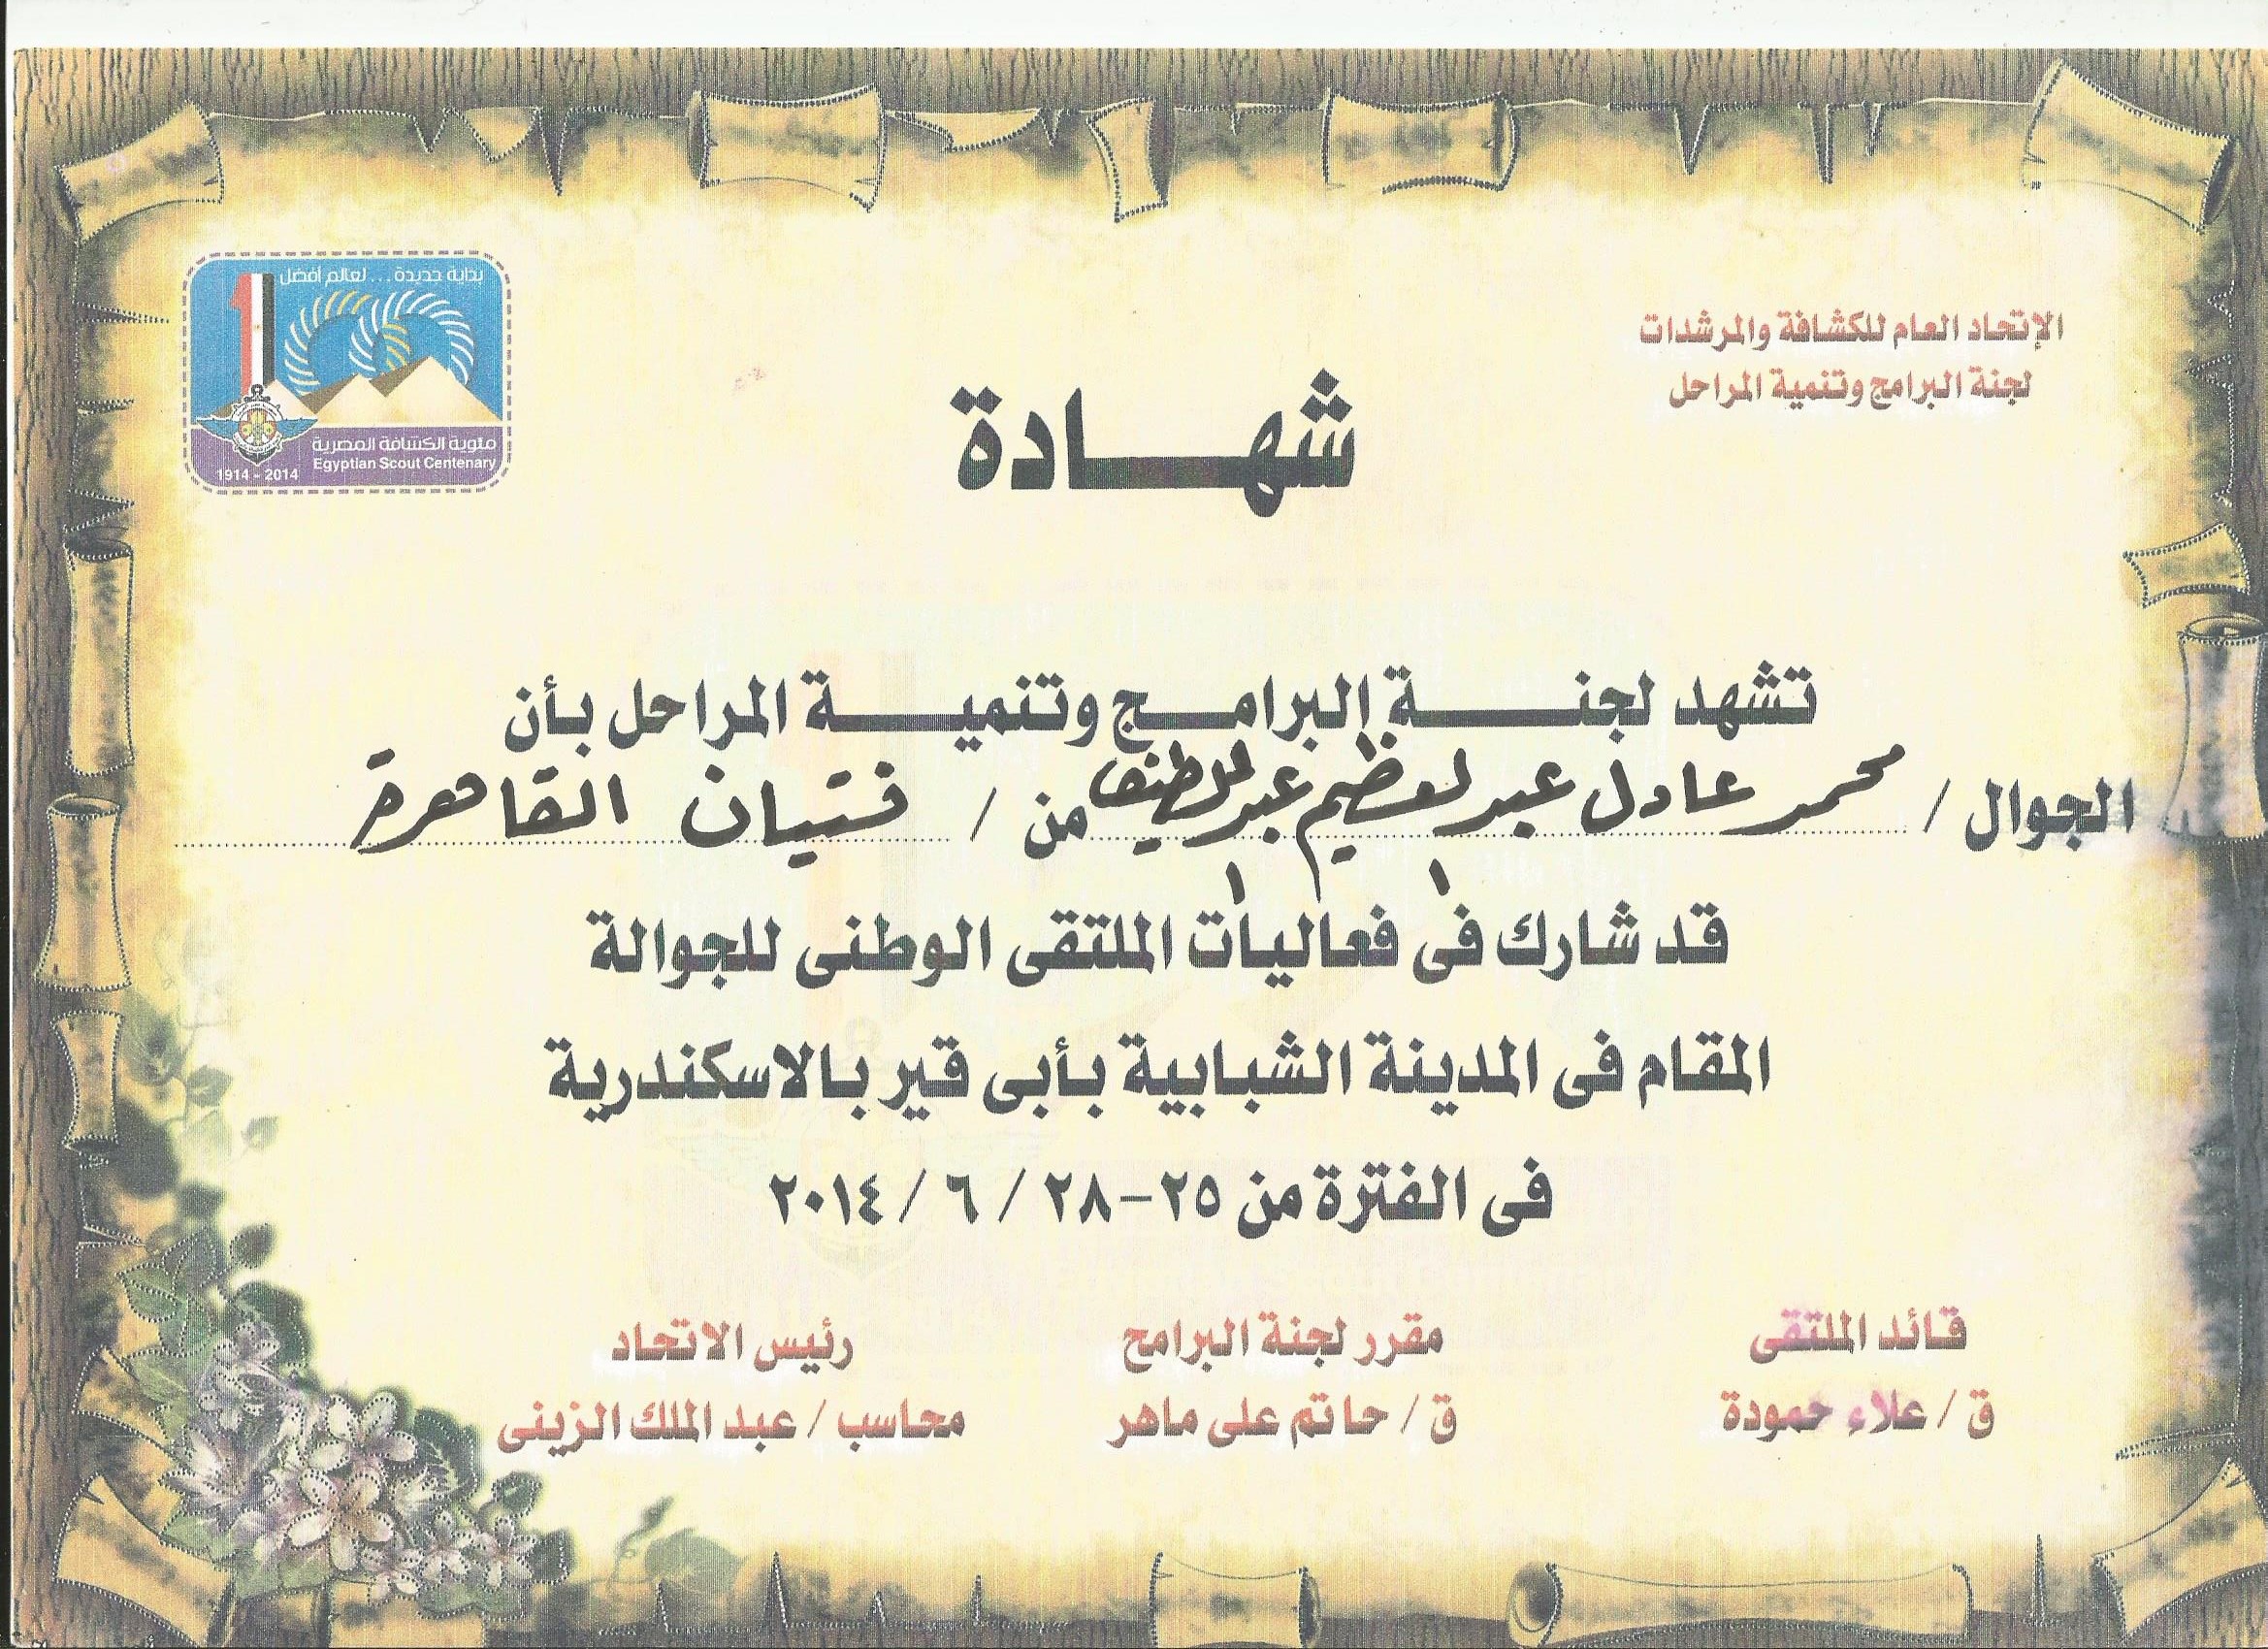 الإتحاد العام للكشافة والمرشدات
لجنة البرامج وتنمية المراحل
بداية جديدة... لعالم أفضل
100
مئوية الكشافة المصرية
Egyptian Scout Centenary
1914 - 2014
شهادة
تشهد لجنة البرامج وتنمية المراحل بأن
الجوال / محمد عادل عبد العظيم عبد اللطيف من / فتيان القاهرة
قد شارك فى فعاليات الملتقى الوطنى للجوالة
المقام فى المدينة الشبابية بأبى قير بالاسكندرية
فى الفترة من ٢٥-٢٨ / ٦ / ٢٠١٤
قائد الملتقى
ق / علاء حمودة
مقرر لجنة البرامج
ق / حاتم على ماهر
رئيس الاتحاد
محاسب / عبد الملك الزينى